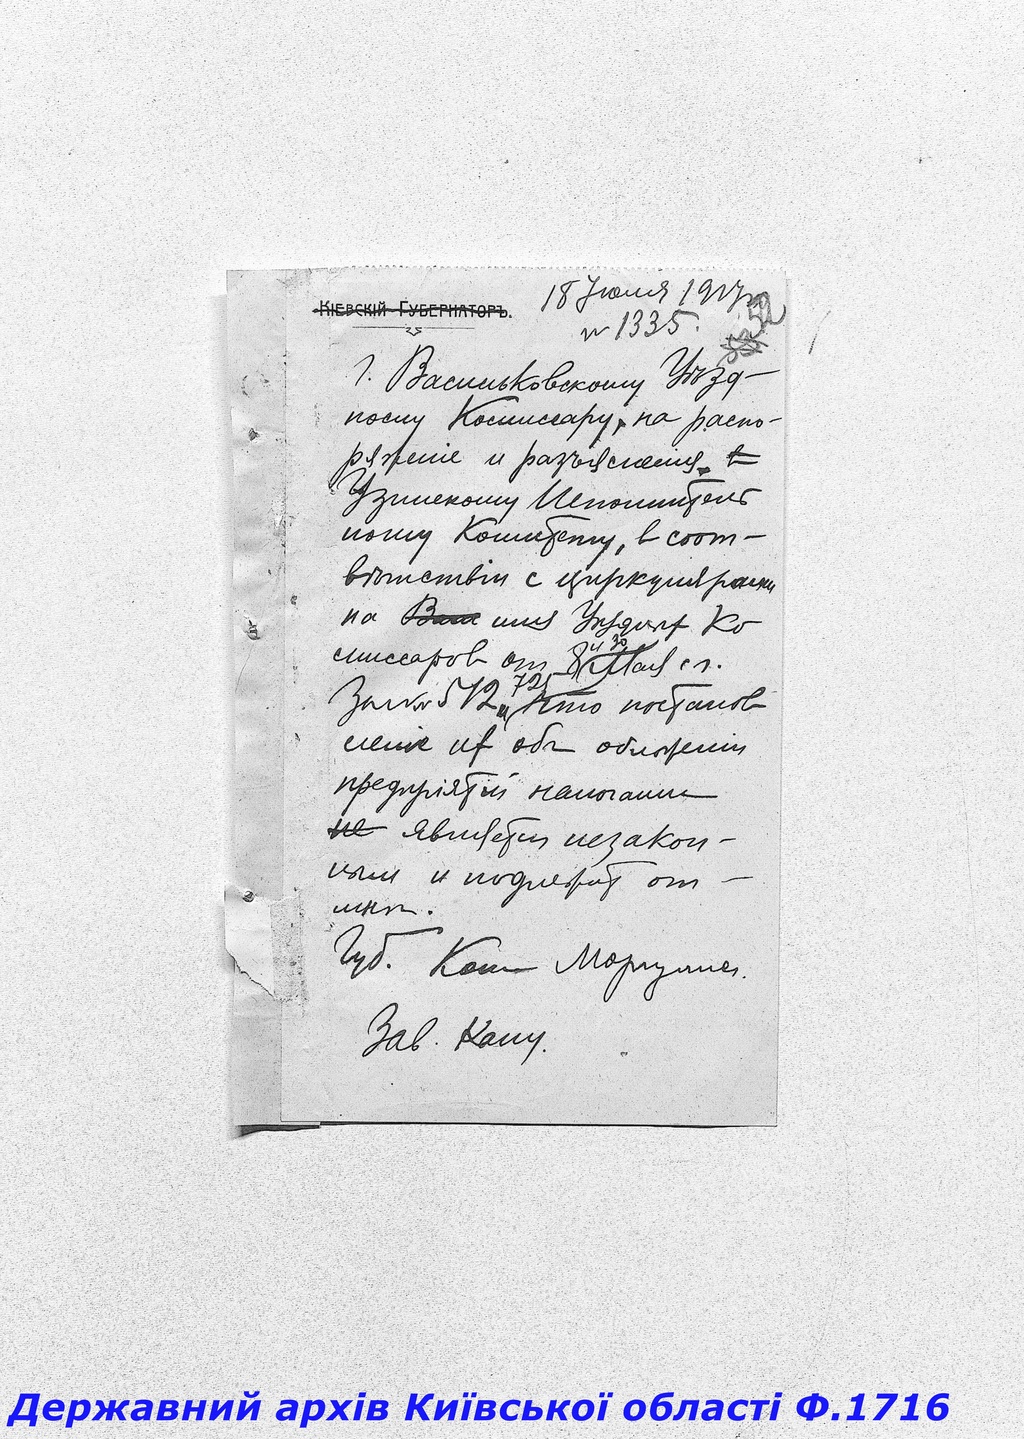 КІЕВСКІЙ ГУБЕРНАТОРЪ.
18 Июля 1917
№ 1335.
52
Г. Васильковскому Уѣзд-
ному Комиссару, на распо-
ряженіе и разъясненія
Узинскому Исполнитель
ному Комитету, в соот-
вѣтствіи с циркулярами
на имя Уѣздных Ко
миссаров от 8 и 30 Мая с.г.
За №№ 572 и 725, что постанов
леніе их объ обложеніи
предпріятій налогами
не является незакон-
ным и подлежит от-
мѣнѣ.
Губ. Ком Моргулис.
Зав. Канц.
Державний архів Київської області Ф.1716